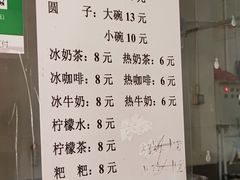 圆　子：大碗 13 元
小碗 10 元
冰奶茶：8 元　热奶茶：6 元
冰咖啡：8 元　热咖啡：6 元
冰牛奶：8 元　热牛奶：6 元
柠檬水：8 元
柠檬茶：8 元
粑　粑：8 元